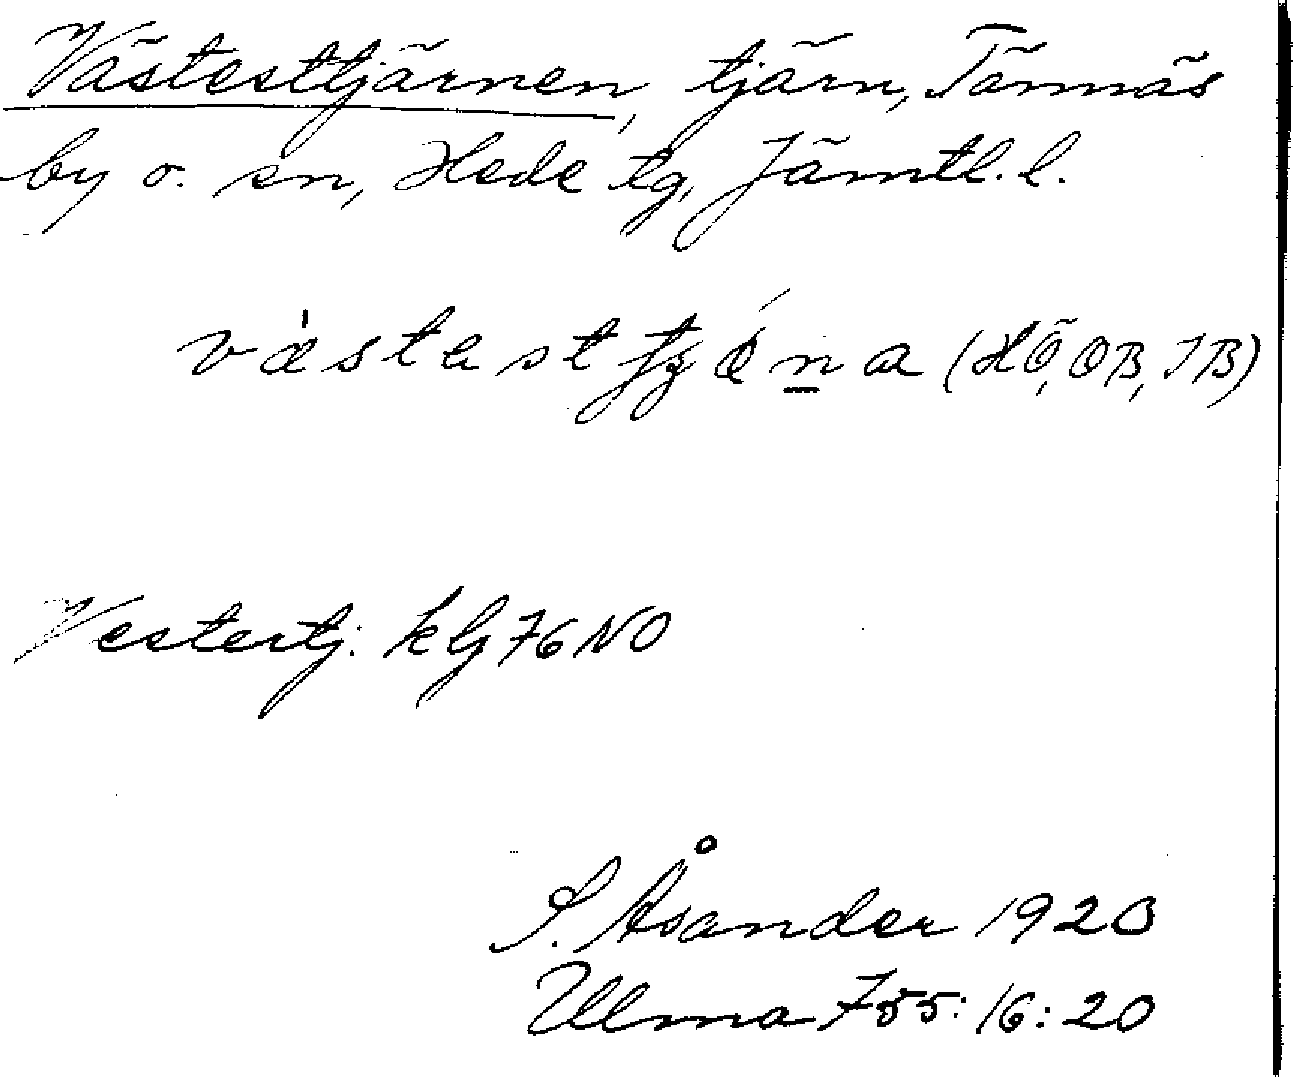 Västesttjärnen, tjärn, Tännäs
by o. sn, Hede tg, Jämtl. l.
(HÖ, OB, JB)
Vestertj: kG76NO
S. Åsander 1920
Ulma 755:16:20